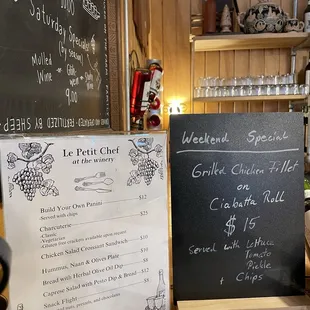 Saturday Specials
Mulled
Wine
9.00
FERTILIZED BY SHEEP
Le Petit Chef
at the winery
Build Your Own Panini $12
Served with chips
Charcuterie $25
-Classic
-Vegetarian
-Gluten free crackers available upon request
Chicken Salad Croissant Sandwich $10
Hummus, Naan & Olives Plate $10
Bread with Herbal Olive Oil Dip $8
Caprese Salad with Pesto Dip & Bread $12
Snack Flight
Weekend Special
Grilled Chicken Fillet
on
Ciabatta Roll
$15
Served with Lettuce
Tomato
Pickle
+ Chips